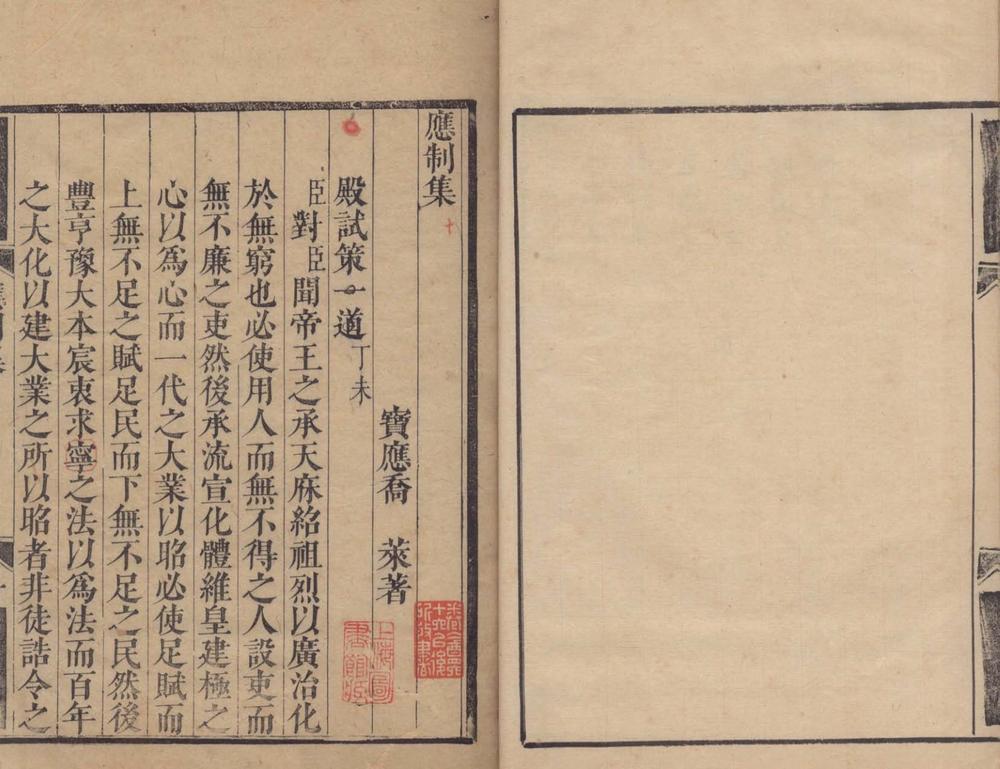 應制集
寶應喬 萊著
殿試策一道丁未
臣對臣聞帝王之承天庥紹祖烈以廣治化
於無窮也必使用人而無不得之人設吏而
無不廉之吏然後承流宣化體維皇建極之
心以為心而一代之大業以昭必使足賦而
上無不足之賦足民而下無不足之民然後
豐亨豫大本宸衷求寧之法以為法而百年
之大化以建大業之所以昭者非徒誥令之
上海圖
書館藏